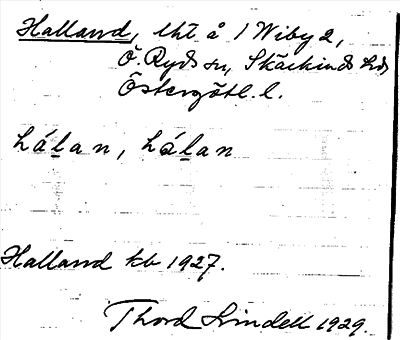 Halland, lht å 1 Wiby 2,
Ö. Ryds sn, Skärkinds hd,
Östergötl. l.
hálan, hálan
Halland kb 1927.
Thord Lindell 1929.